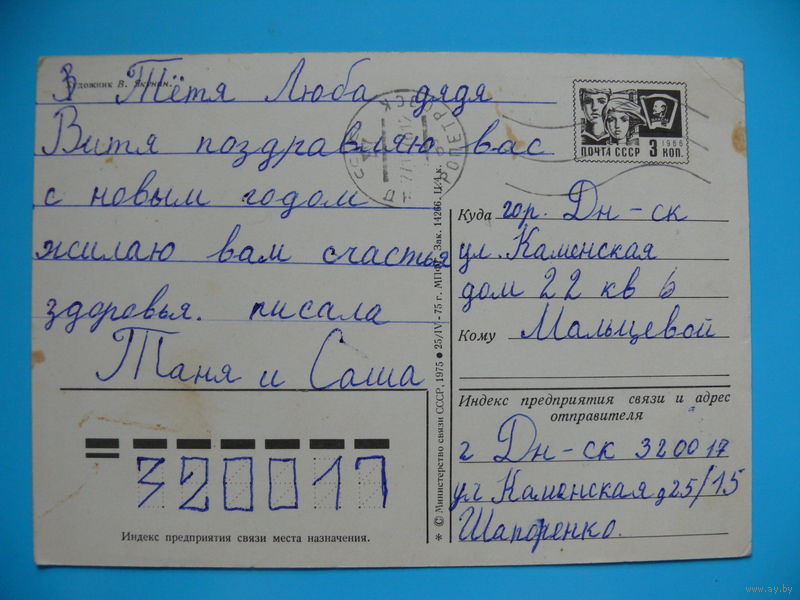 Художник В. Якунин.
Тётя Люба дядя
Витя поздравляю вас
с новым годом
жилаю вам счастья
здоровья. писала
Таня и Саша
320017
Индекс предприятия связи места назначения.
* © Министерство связи СССР, 1975 ● 25/IV-75 г. МПФГ. Зак. 14266. Ц. 4 к.
ПОЧТА СССР 3 КОП.
1966
Куда гор. Дн-ск
ул. Каменская
дом 22 кв 6
Кому Мальцевой
Индекс предприятия связи и адрес
отправителя
г Дн-ск 320017
ул Каменская д25/15
Шапоренко.
www.ay.by